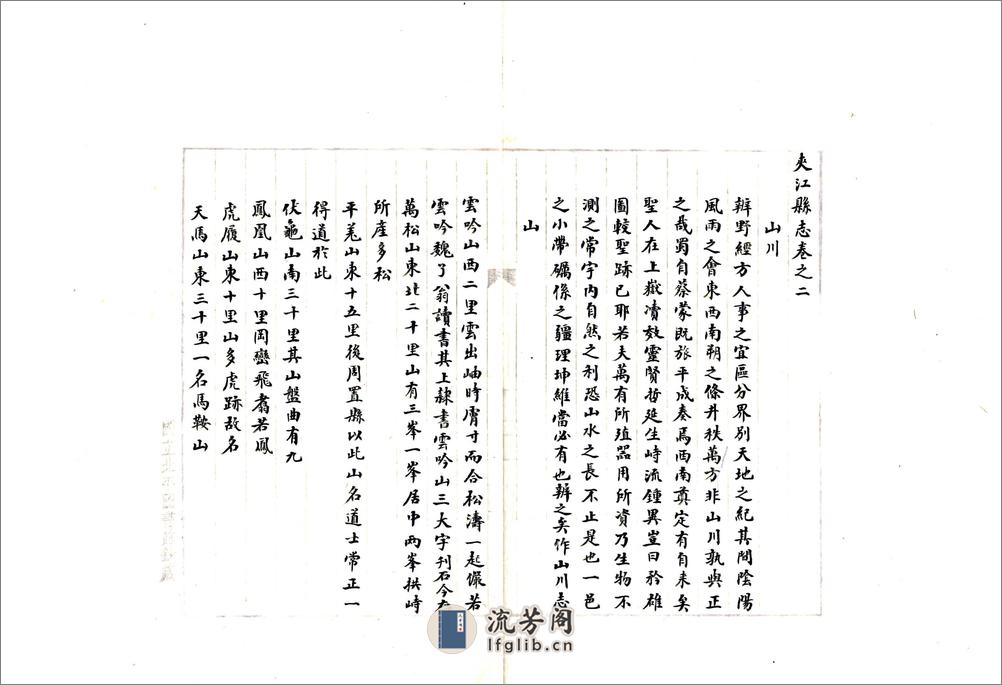 夾江縣志卷之二
山川
辨野經方人事之宜區分界別天地之紀其間陰陽
風雨之會東西南朔之條井秩萬方非山川孰與正
之哉蜀自蔡蒙既旅平成奏焉西南奠定有自來矣
聖人在上嶽瀆效靈賢哲延生峙流鍾異豈曰矜雄
圖較聖跡已耶若夫萬有所殖器用所資乃生物不
測之常宇內自然之利恐山水之長不止是也一邑
之小帶礪係之疆理坤維當必有也辨之矣作山川志
山
雲吟山西二里雲出岫時膚寸而合松濤一起儼若
雲吟魏了翁讀書其上隸書雲吟山三大字刊石今存
萬松山東北二十里山有三峯一峯居中兩峯拱峙
所產多松
平羗山東十五里後周置縣以此山名道士常正一
得道於此
伏龜山南三十里其山盤曲有九
鳳凰山西十里岡巒飛翥若鳳
虎履山東十里山多虎跡故名
天馬山東三十里一名馬鞍山
流芳阁
lfglib.cn